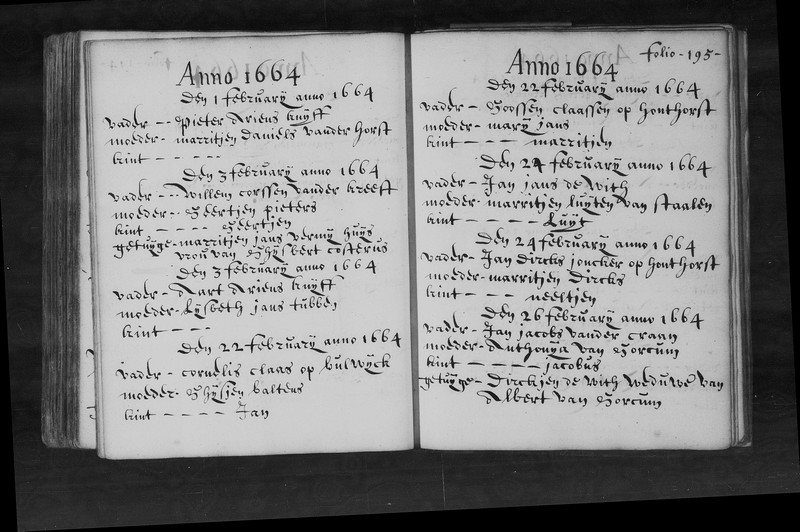 Anno 1664
Den 1 februarÿ anno 1664
vader - - Pieter Ariens kuÿff
moeder - marritjen daniels vander horst
kint - - - - -
Den 3 februarÿ anno 1664
vader - - Willem corssen vander kreeft
moeder - - Geertjen pieters
kint - - - - - Geertjen
getuÿge - marritjen jans vermÿ huÿs
vrou van Ghÿsbert costerus
Den 3 februarÿ anno 1664
vader - Aart Ariens kuÿff
moeder - Lÿsbeth jans tubben
kint - - - -
Den 22 februarÿ anno 1664
vader - cornelis claas op bulwÿck
moeder - Ghÿsjen baltens
kint - - - - - Jan
folio - 195 -
Anno 1664
Den 22 februarÿ anno 1664
vader - Goossen claassen op honthorst
moeder - marÿ jans
kint - - - - marritjen
Den 24 februarÿ anno 1664
vader - Jan jans de With
moeder - marritjen luÿten van staalen
kint - - - - - Luÿt
Den 24 februarÿ anno 1664
vader - Jan Dircks joncker op honthorst
moeder - marritjen Dircks
kint - - - - neeltjen
Den 26 februarÿ anno 1664
vader - Jan jacobs vander craan
moeder - Anthonÿa van Gorcum
kint - - - - - jacobus
getuÿge - Dirckjen de With weduwe van
Albert van Gorcum